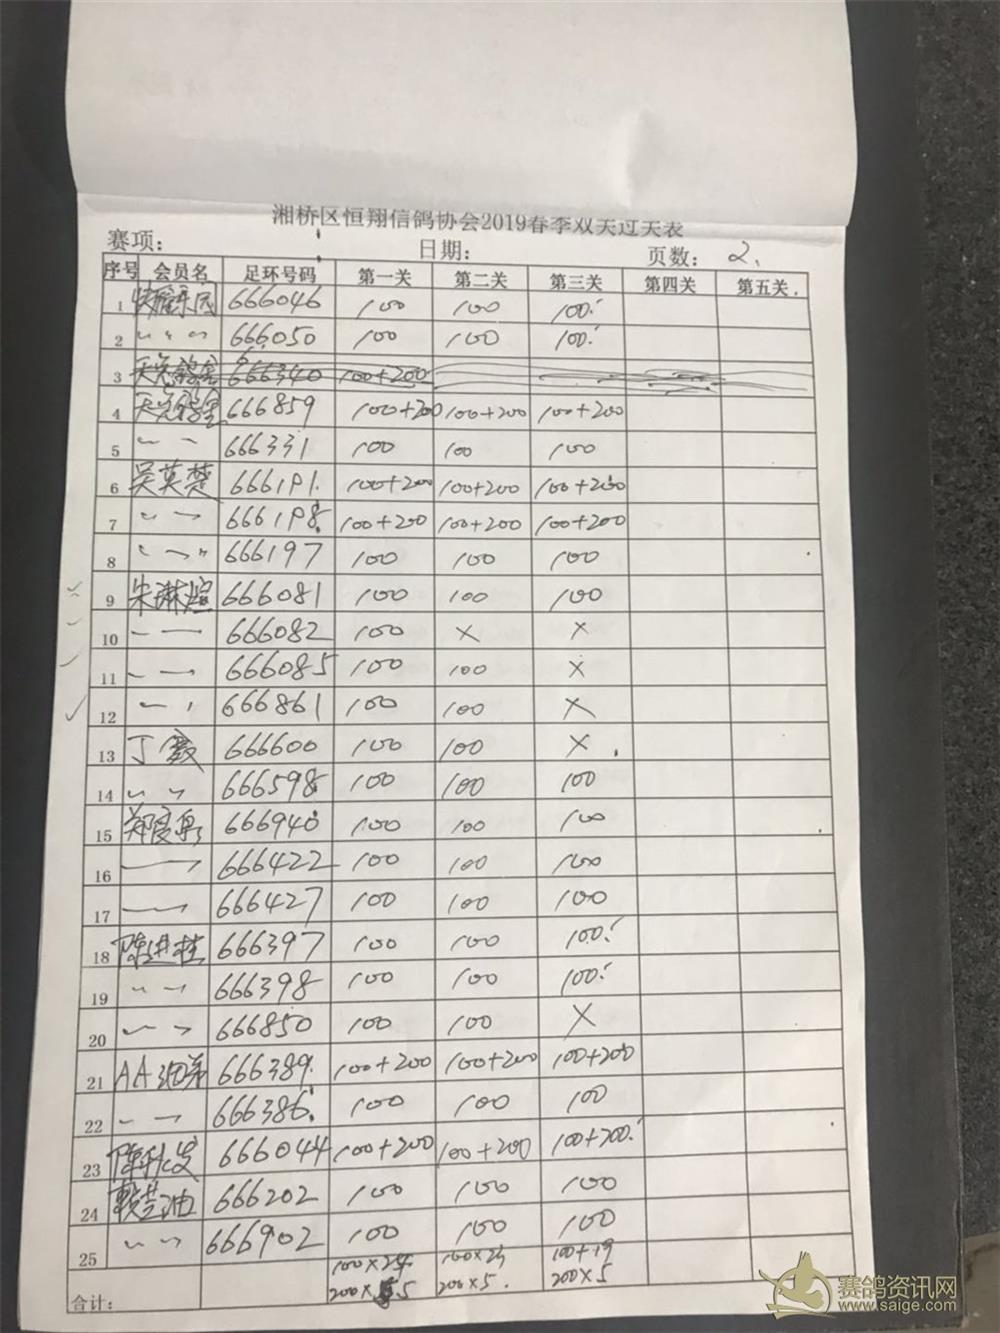 湘桥区恒翔信鸽协会2019春季双关过关表
赛项: 日期: 页数: 2.
序号 会员名 足环号码 第一关 第二关 第三关 第四关 第五关
1 666046 100 100 100.
2 〃 〃 〃 666050 100 100 100.
3 天 鸽舍 666340 100+200
4 天 鸽舍 666859 100+200 100+200 100+200
5 〃 〃 666331 100 100 100
6 吴英楚 666191. 100+200 100+200 100+200
7 〃 〃 666198. 100+200 100+200 100+200
8 〃 〃 〃 666197 100 100 100
9 朱琳煊 666081 100 100 100
10 〃 〃 666082 100 × ×
11 〃 〃 666085 100 100 ×
12 〃 〃 666861 100 100 ×
13 丁霞 666600 100 100 ×
14 〃 〃 666598 100 100 100
15 郑 666940 100 100 100
16 〃 666422 100 100 100
17 〃 666427 100 100 100
18 陈进桂 666397 100 100 100.
19 〃 〃 666398 100 100 100.
20 〃 〃 666850 100 100 ×
21 AA 兄弟 666389. 100+200 100+200 100+200
22 〃 〃 666386. 100 100 100
23 陈秋发 666044 100+200 100+200 100+200.
24 666202 100 100 100
25 〃 〃 666902 100 100 100
100×24 100×23 100+19
合计: 200×5 200×5. 200×5
赛鸽资讯网
www.saige.com